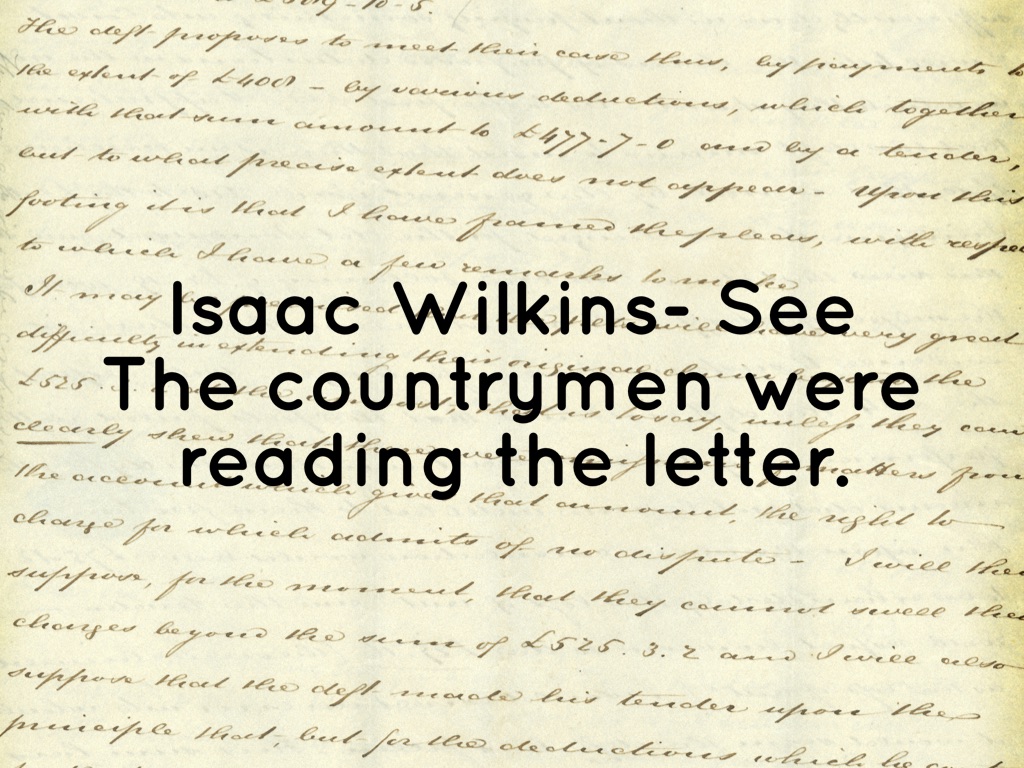 The deft proposes to meet their case thus, by payments to
the extent of £400 – by various deductions, which together
with that sum amount to £477-7-0 and by a tender,
but to what precise extent does not appear – Upon this
footing it is that I have framed the pleas, with respec
to which I have a few remarks to make
It may be
Isaac Wilkins- See
very great
difficulty in extending their original the
The countrymen were
£525 unless they can
clearly shew that
reading the letter.
matters from
the account which gives that amount, the right to
charge for which admits of no dispute – I will then
suppose, for the moment, that they cannot swell their
charges beyond the sum of £525. 3. 2 and I will also
suppose that the deft made his tender upon the
principle that, but for the deductions which he